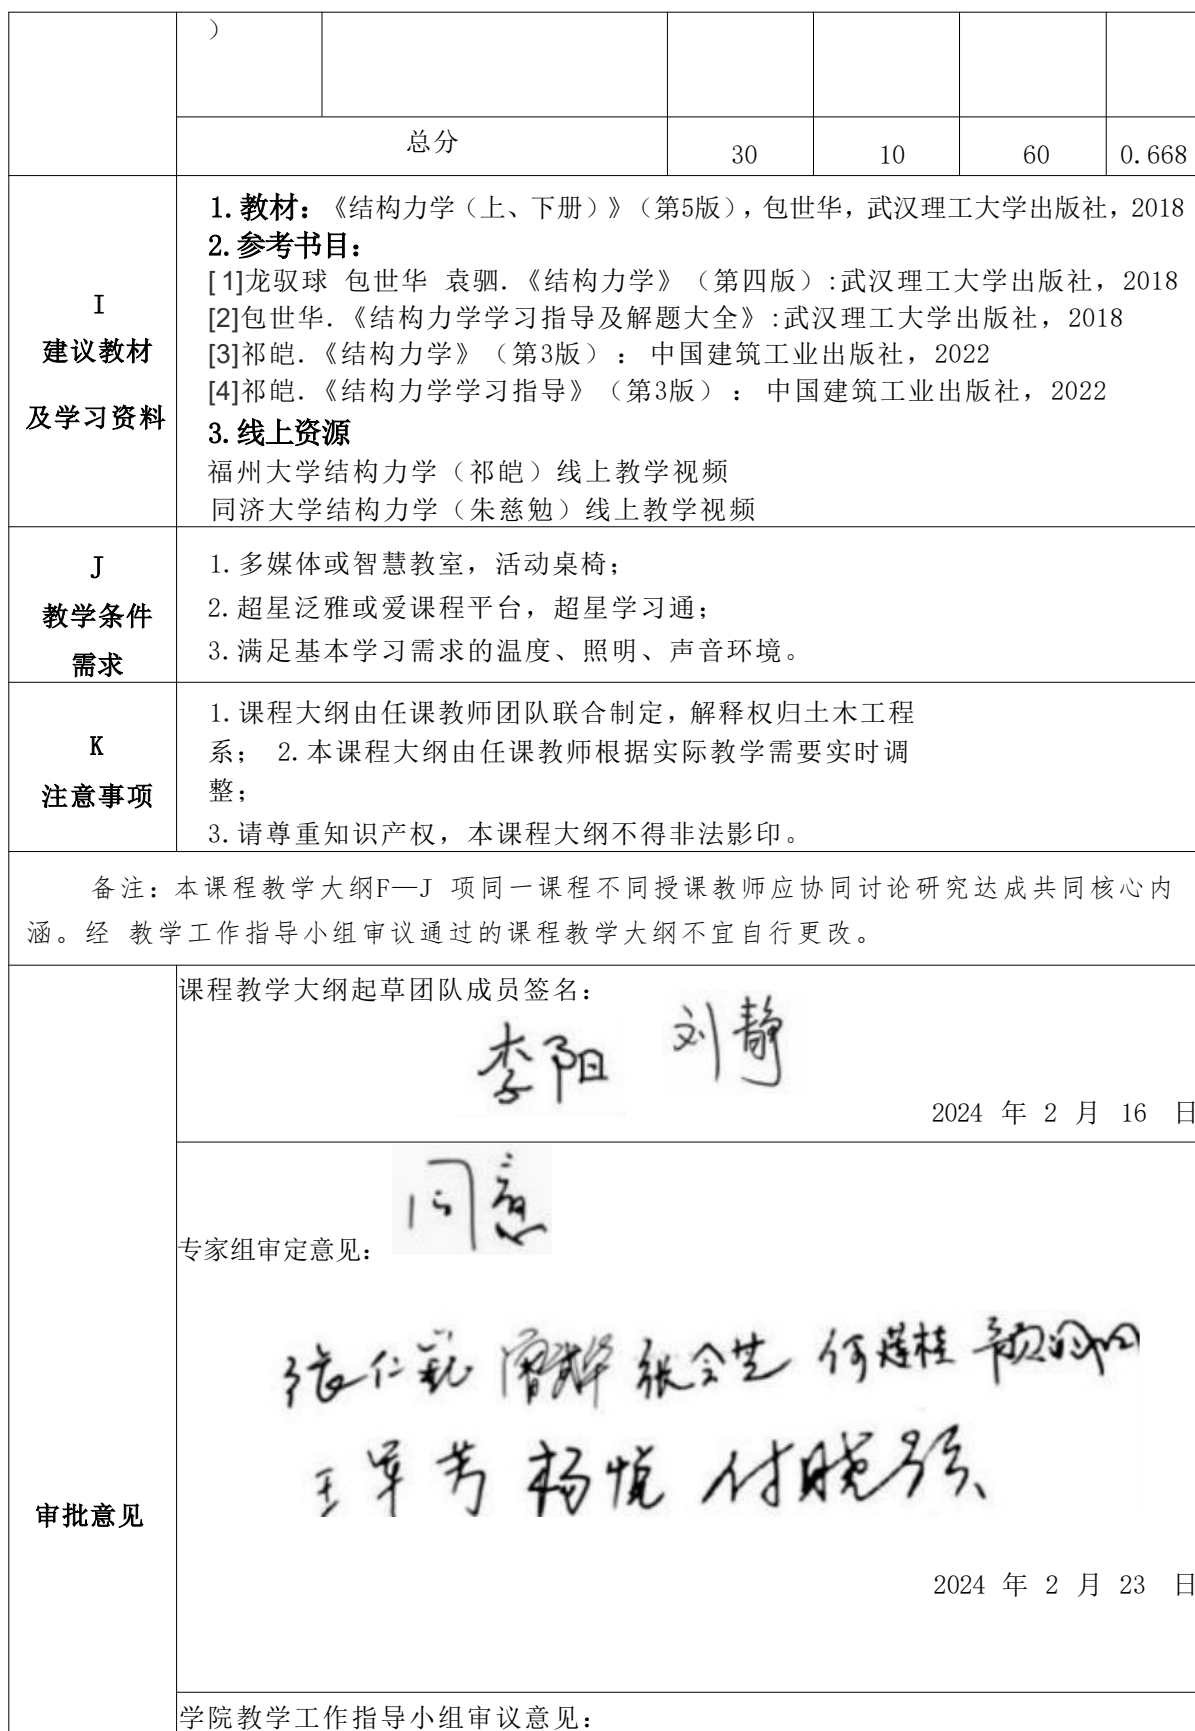 ）
总分 30 10 60 0.668
I
建议教材
及学习资料
1.教材：《结构力学（上、下册）》（第5版），包世华，武汉理工大学出版社，2018
2.参考书目：
[1]龙驭球 包世华 袁驷.《结构力学》（第四版）:武汉理工大学出版社，2018
[2]包世华.《结构力学学习指导及解题大全》:武汉理工大学出版社，2018
[3]祁皑.《结构力学》（第3版）：中国建筑工业出版社，2022
[4]祁皑.《结构力学学习指导》（第3版）：中国建筑工业出版社，2022
3.线上资源
福州大学结构力学（祁皑）线上教学视频
同济大学结构力学（朱慈勉）线上教学视频
J
教学条件
需求
1.多媒体或智慧教室，活动桌椅；
2.超星泛雅或爱课程平台，超星学习通；
3.满足基本学习需求的温度、照明、声音环境。
K
注意事项
1.课程大纲由任课教师团队联合制定，解释权归土木工程
系； 2.本课程大纲由任课教师根据实际教学需要实时调
整；
3.请尊重知识产权，本课程大纲不得非法影印。
备注：本课程教学大纲F—J 项同一课程不同授课教师应协同讨论研究达成共同核心内
涵。经 教学工作指导小组审议通过的课程教学大纲不宜自行更改。
审批意见
课程教学大纲起草团队成员签名：
李阳 刘静
2024 年 2 月 16 日
同意
专家组审定意见：
张仁巍 张会芝 何莲桂
杨悦 付晓强
2024 年 2 月 23 日
学院教学工作指导小组审议意见：